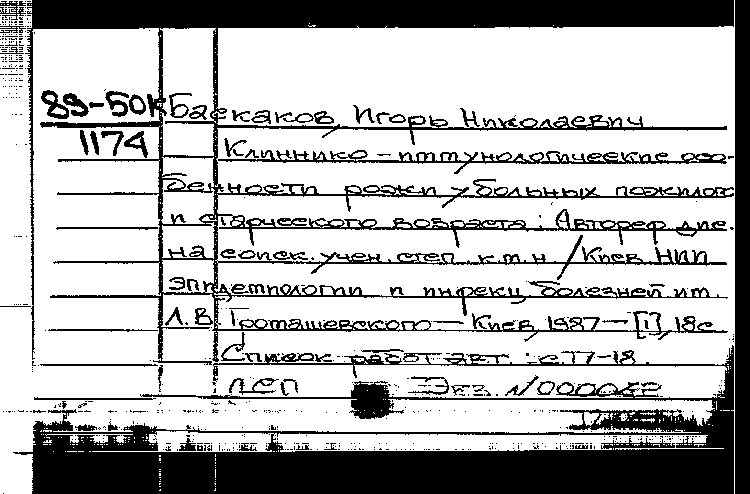 89-50к Баскаков, Игорь Николаевич
1174 Клиннико-иммунологические осо-
бенности рожи у больных пожилого
и старческого возраста: Автореф дис.
на соиск. учен. степ. к.м.н / Киев. НИИ
эпидемиологии и инфекц. болезней им.
Л.В. Громашевского — Киев, 1987 — [1], 18с
Список работ авт.: с.17-18.
ДСП Экз. N/000082